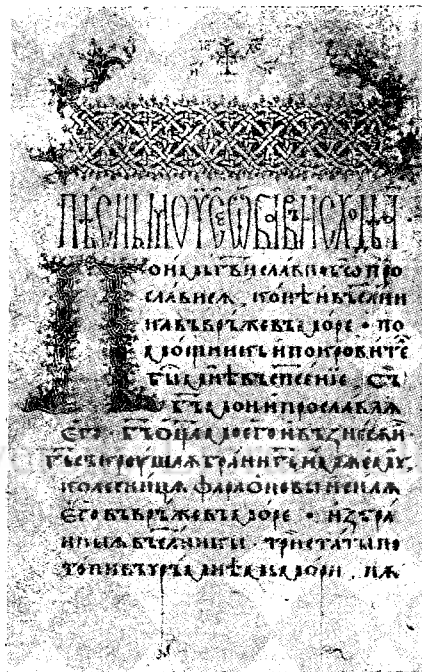 ПѢСНЬ МОѴ̈СЕѠВА В ИСХОДѢ
Поимь г҃ви славно бо про
слависѧ. конѣ и въсѣдни
ка въврѫже въ море · по
мощникь и покровите
бы мнѣ въ сп҃сенїе. сь
б҃ъ мои и прославлѫ
его. б҃ъ ѡ҃ца моего и възнесѫ и
г҃ь съкроушаѫ брани г҃ь имѧ емоу.
колесницѫ фараѡновы и силѫ
его въврѫже въ море · избра
нныѫ въсѣдникы тристаты по
топи въ чръмнѣмь мори. пѫ